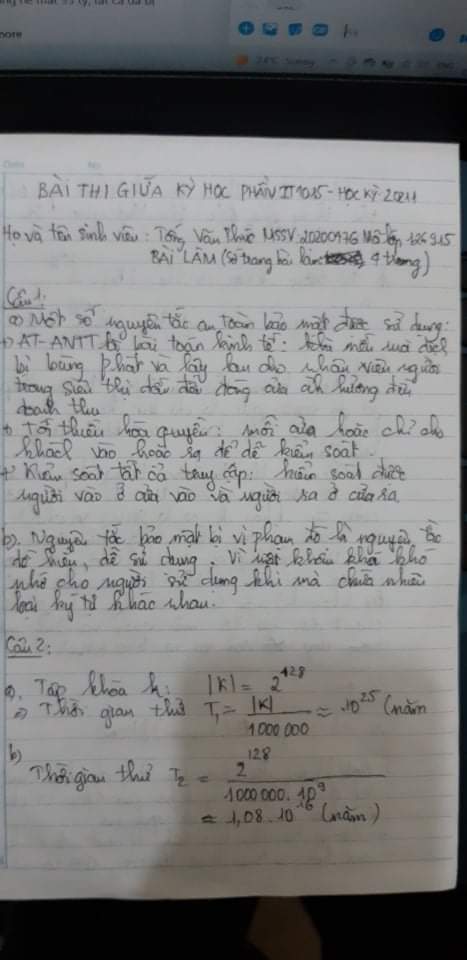 more
24°C Sunny
Date No
BÀI THI GIỮA KỲ HỌC PHẦN IT1015 - HỌC KỲ 20211
Họ và tên sinh viên: Tống Văn MSSV: 2020 Mã lớp 126915
BÀI LÀM (Số trang bài làm 4 trang)
Câu 1:
a) Một số nguyên tắc an toàn bảo mật được sử dụng:
+ AT-ANTT là bài toán kinh tế: khi mà dịch
bị bùng phát và lây lan cho nhân viên, người
trong siêu thị dẫn đến đóng cửa ảnh hưởng đến
doanh thu
+ Tối thiểu hóa quyền: mỗi cửa hoặc chỉ cho
khách vào hoặc ra để dễ kiểm soát.
+ Kiểm soát tất cả truy cập: kiểm soát được
người vào ở cửa vào và người ra ở cửa ra.
b). Nguyên tắc bảo mật bị vi phạm đó là nguyên tắc
dễ hiểu, dễ sử dụng. Vì mật khẩu khá khó
nhớ cho người sử dụng khi mà chứa nhiều
loại ký tự khác nhau.
Câu 2:
a. Tập khóa k: |K| = 2^128
⇒ Thời gian thử T₁ = |K| / 1000000 ≈ 10^25 (năm
b)
Thời gian thử T₂ = 2^128 / 1000000.10^9
≈ 1,08.10^16 (năm)